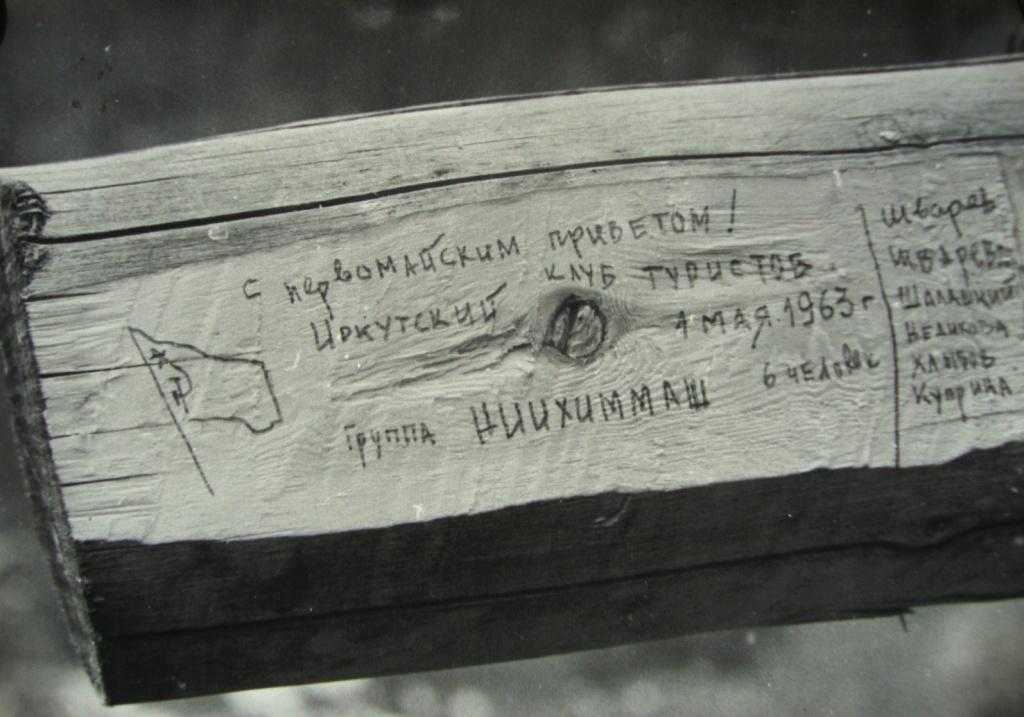 С первомайским приветом!
Иркутский клуб туристов
1 мая 1963 г
6 человек
группа НИИХИММАШ
Шварев
Шварева
Шалашкий
Неликова
Хлыбов
Куприна